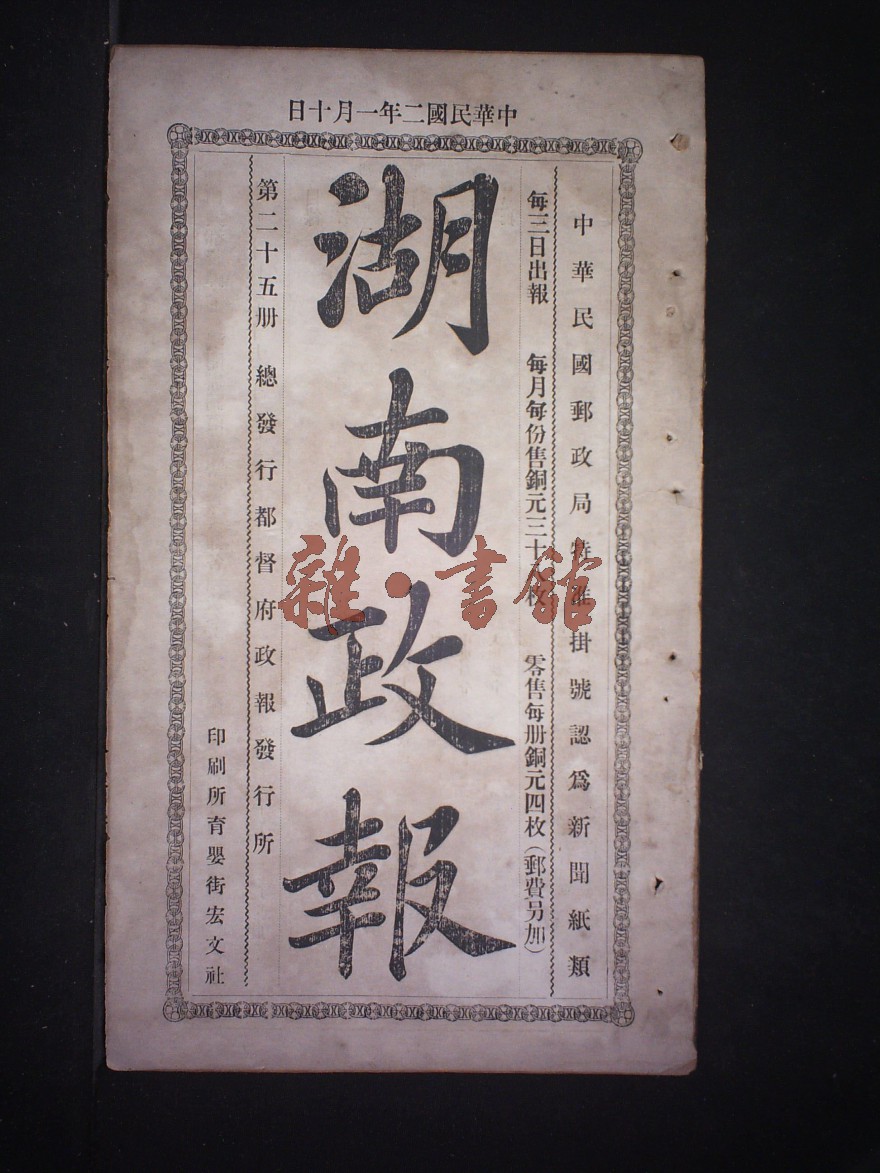 中華民國二年一月十日
中華民國郵政局特準掛號認爲新聞紙類
每三日出報 每月每份售銅元三十 枚 零售每册銅元四枚（郵費另加）
湖南政報
第二十五册 總發行都督府政報發行所
印刷所育嬰街宏文社
雜·書館